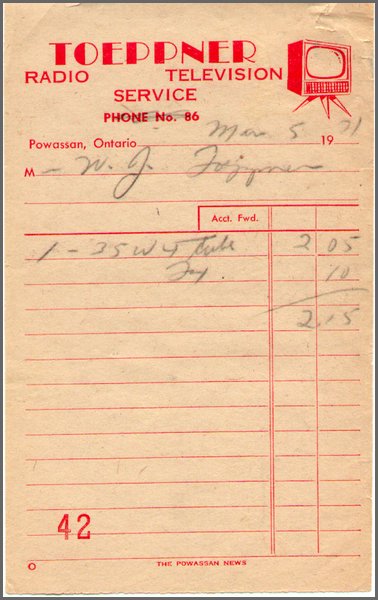 TOEPPNER
RADIO TELEVISION
SERVICE
PHONE No. 86
Powassan, Ontario Mar 5 1971
M - W. J. Toeppner
Acct. Fwd.
1 - 35W4 tube 2 05
Tx 10
2.15
42
O THE POWASSAN NEWS